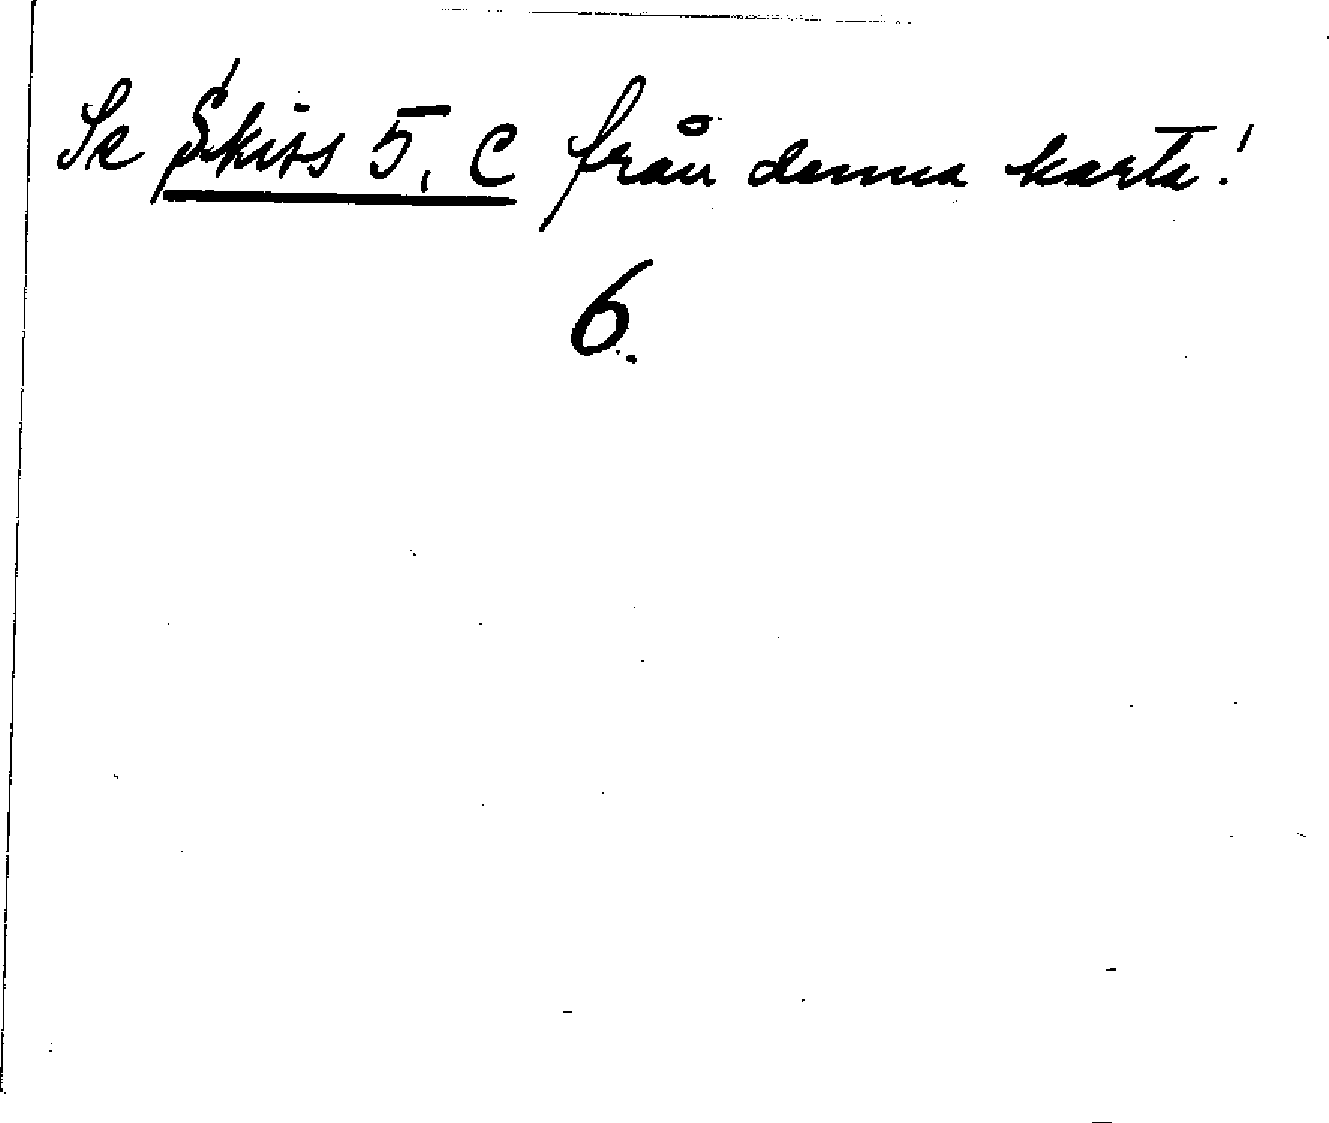 Se Skiss 5, C från denna karta!
6.